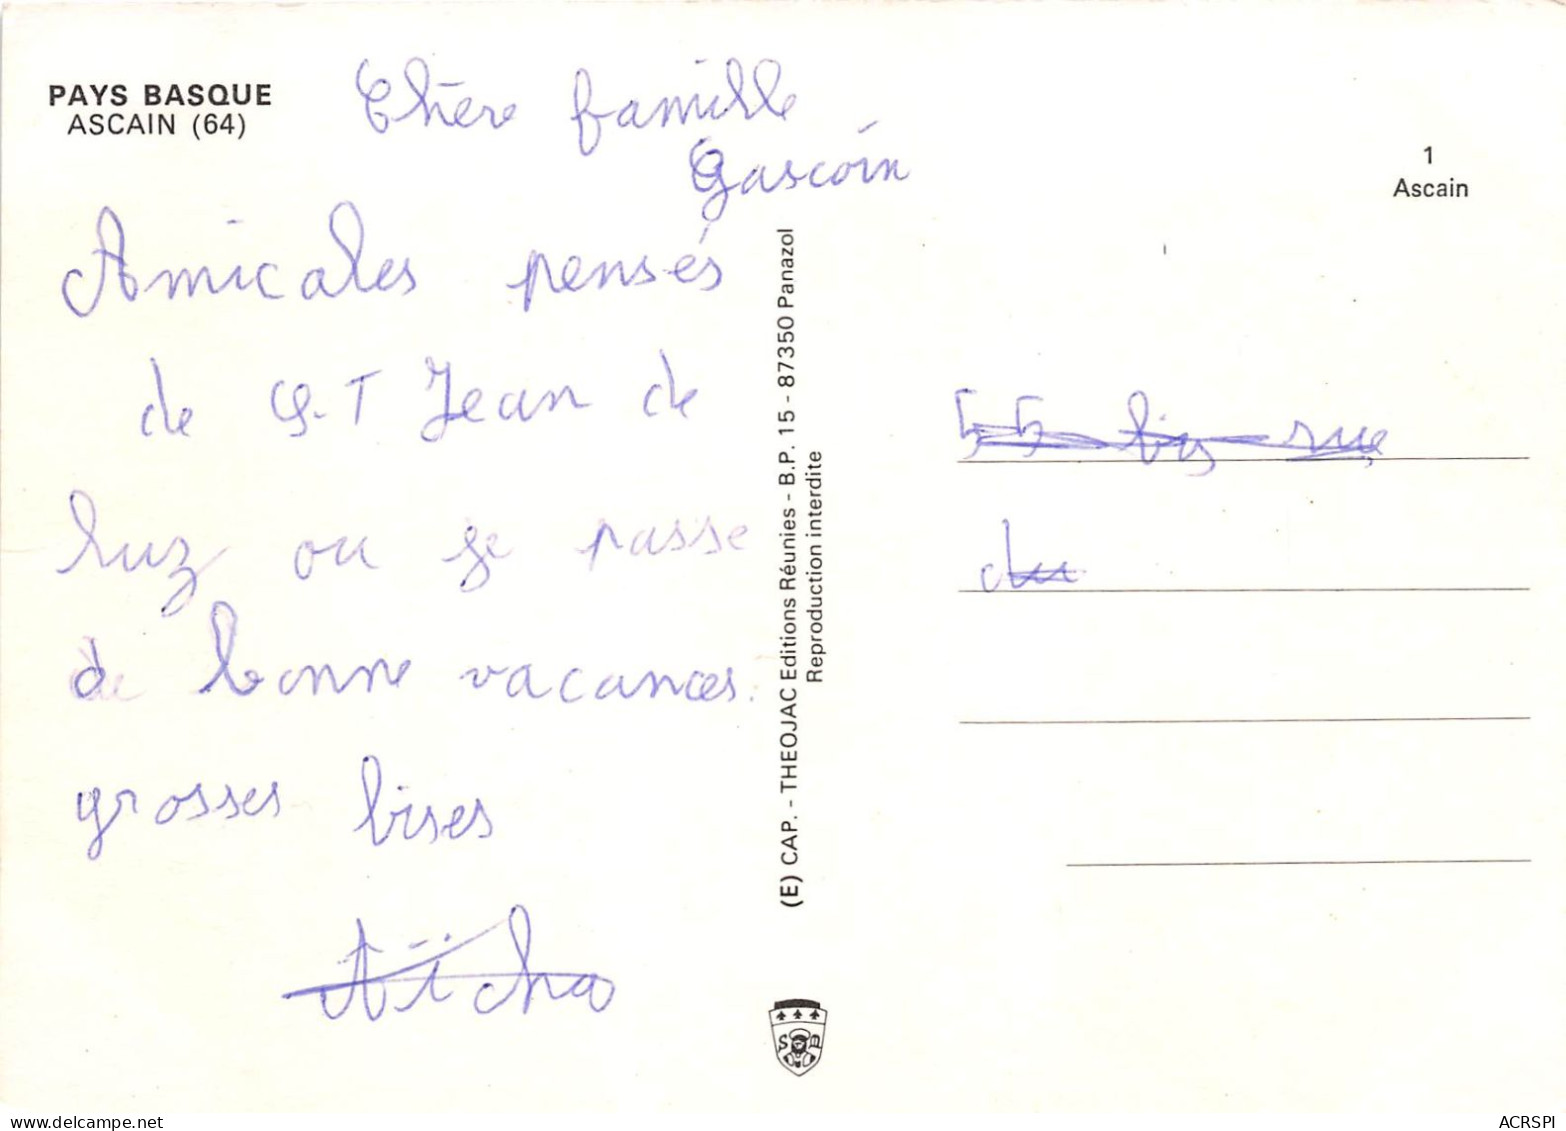 PAYS BASQUE
ASCAIN (64)
Chère famille
Gascoin
Amicales pensés
de S.T Jean de
luz ou je passe
de bonne vacances.
grosses bises
Aïcha
(E) CAP. - THEOJAC Editions Réunies - B.P. 15 - 87350 Panazol
Reproduction interdite
1
Ascain
55 bis rue
du
www.delcampe.net
ACRSPI